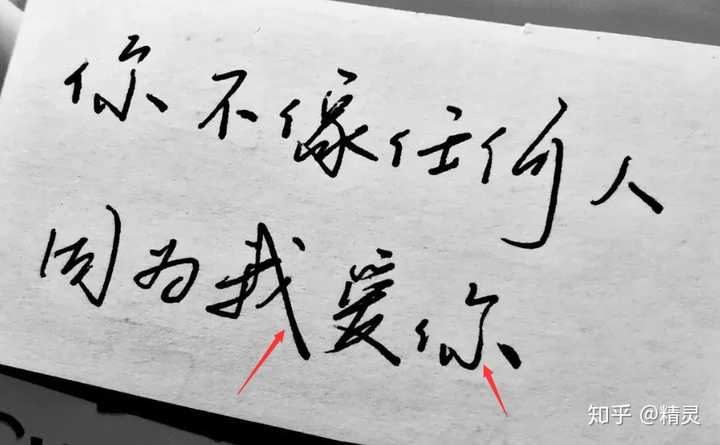 你不像任何人
因为我爱你
知乎 @精灵